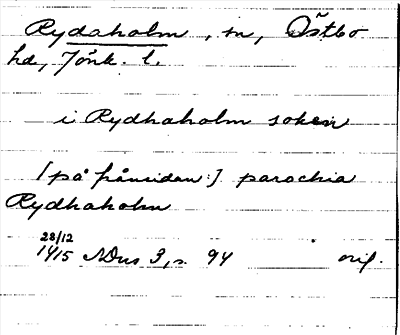 Rydaholm, sn, Östbo
hd, Jönk. l.
i Rydhaholm soken
[på frånsidan:] parochia
Rydhaholm
28/12
1415 NDns 3, s. 94 orig.